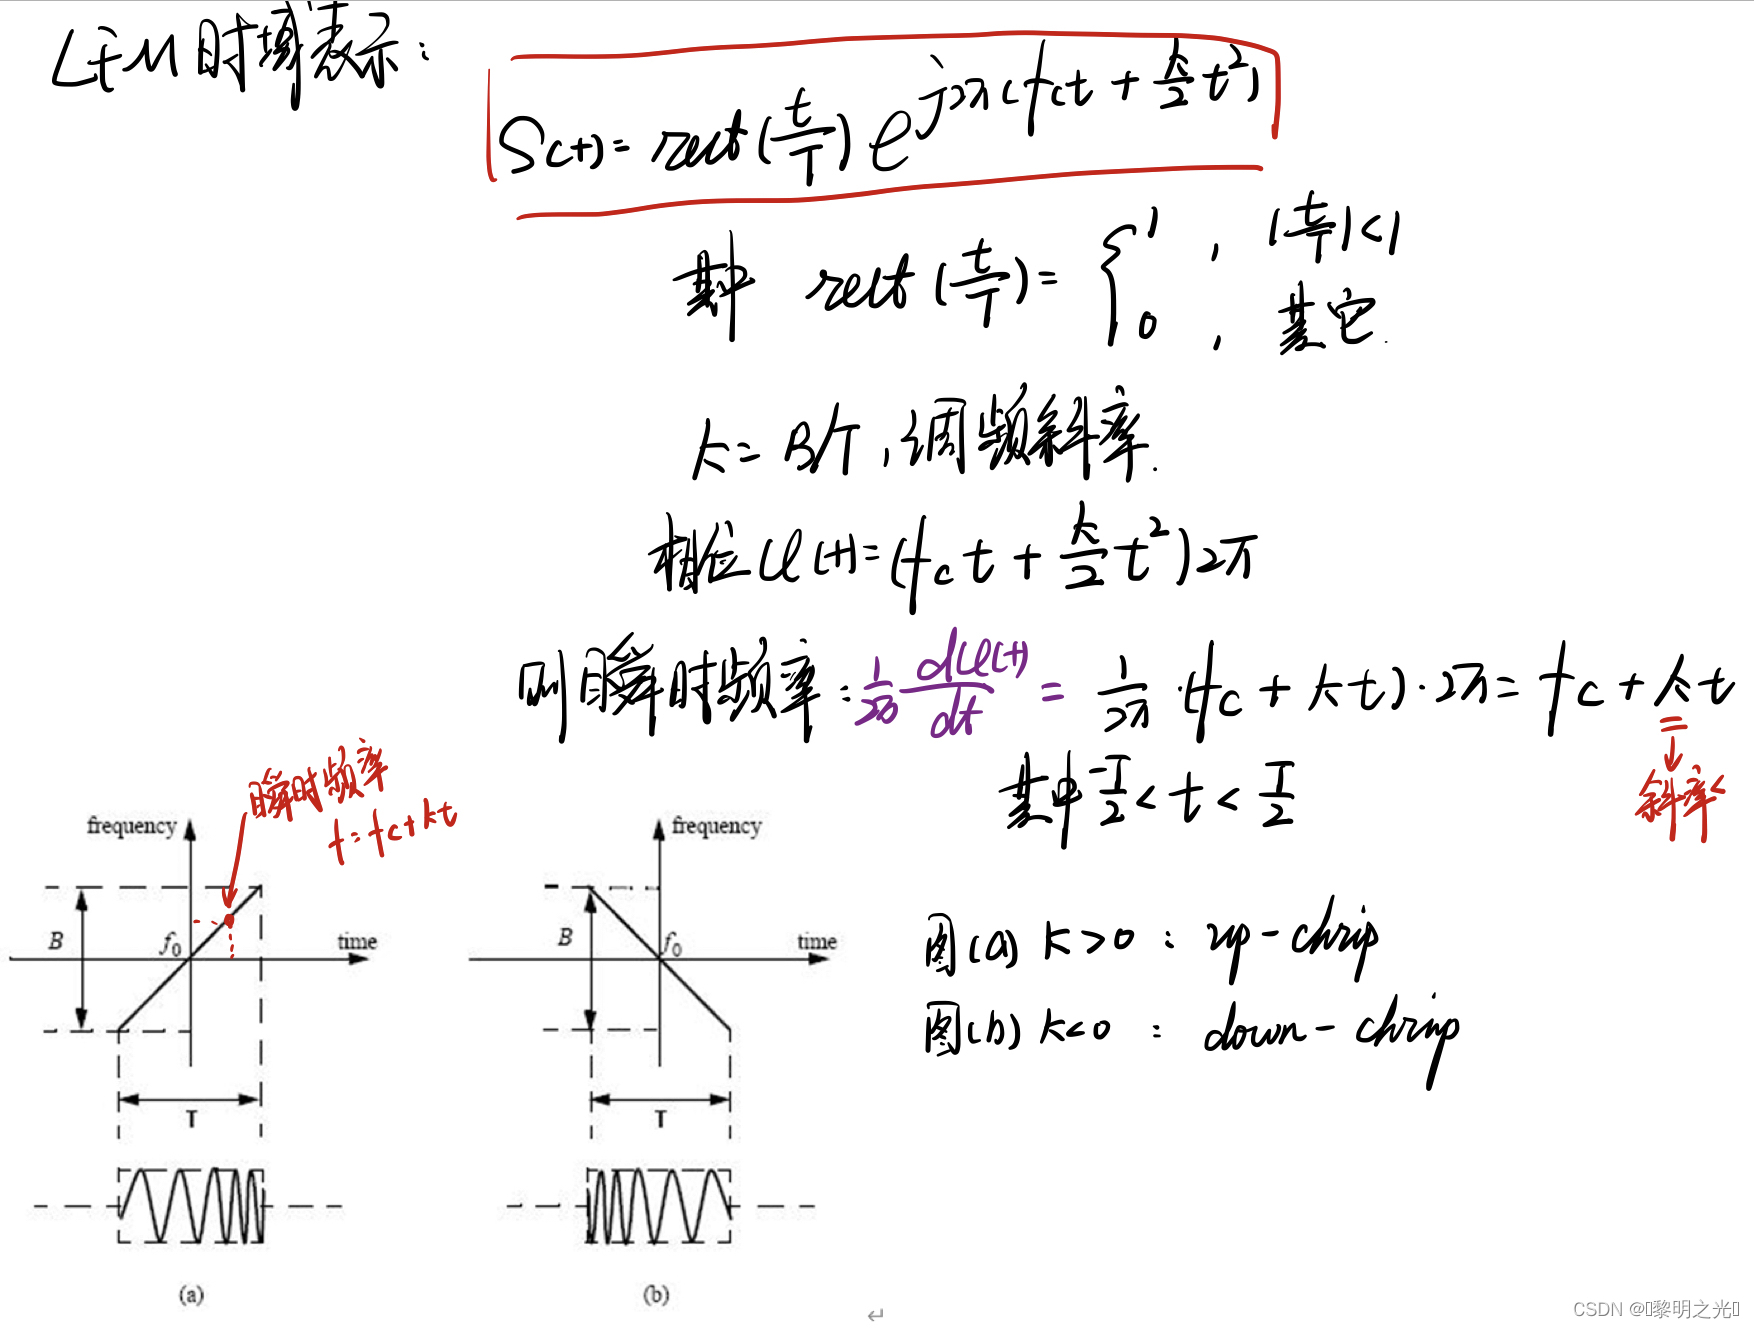 LFM时域表示：
S(t)= rect(t/T) e^{j2π(fct + K/2 t²)}
其中 rect(t/T)= { 1 , |t/T|<1
0 , 其它.
K= B/T , 调频斜率.
相位φ(t)=(fct + K/2 t²)2π
则瞬时频率：1/2π dφ(t)/dt = 1/2π ·(fc + Kt)·2π= fc + Kt
斜率
其中 -T/2 < t < T/2
瞬时频率
f=fc+Kt
frequency
B
f0
time
T
(a)
frequency
B
f0
time
T
(b)
图(a) K>0 : up-chrip
图(b) K<0 : down-chrip
CSDN @黎明之光